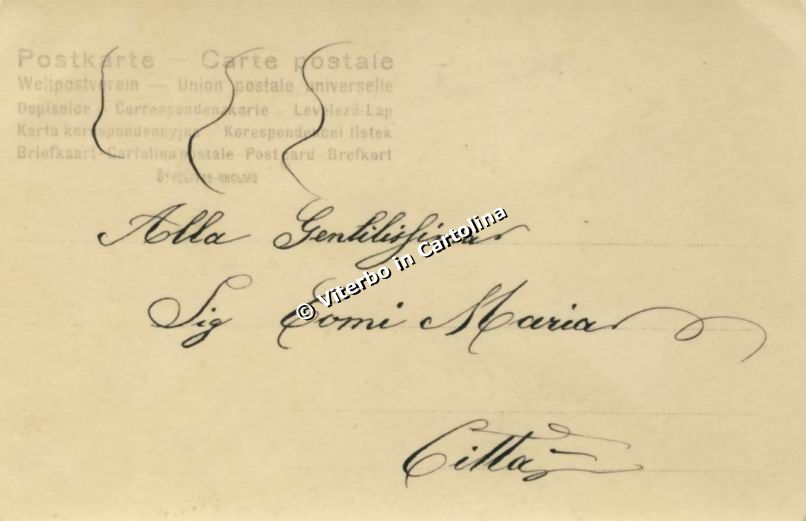 Postkarte — Carte postale
Weltpostverein — Union postale universelle
Dopisnice - Correspondenzkarte - Levelező-Lap
Karta korespondencyjna - Korespondenční listek
Briefkaart - Cartolina postale - Postcard - Brefkort
Открытое-письмо
Alla Gentilissima
Sig Eomi Maria
Città
© Viterbo in Cartolina